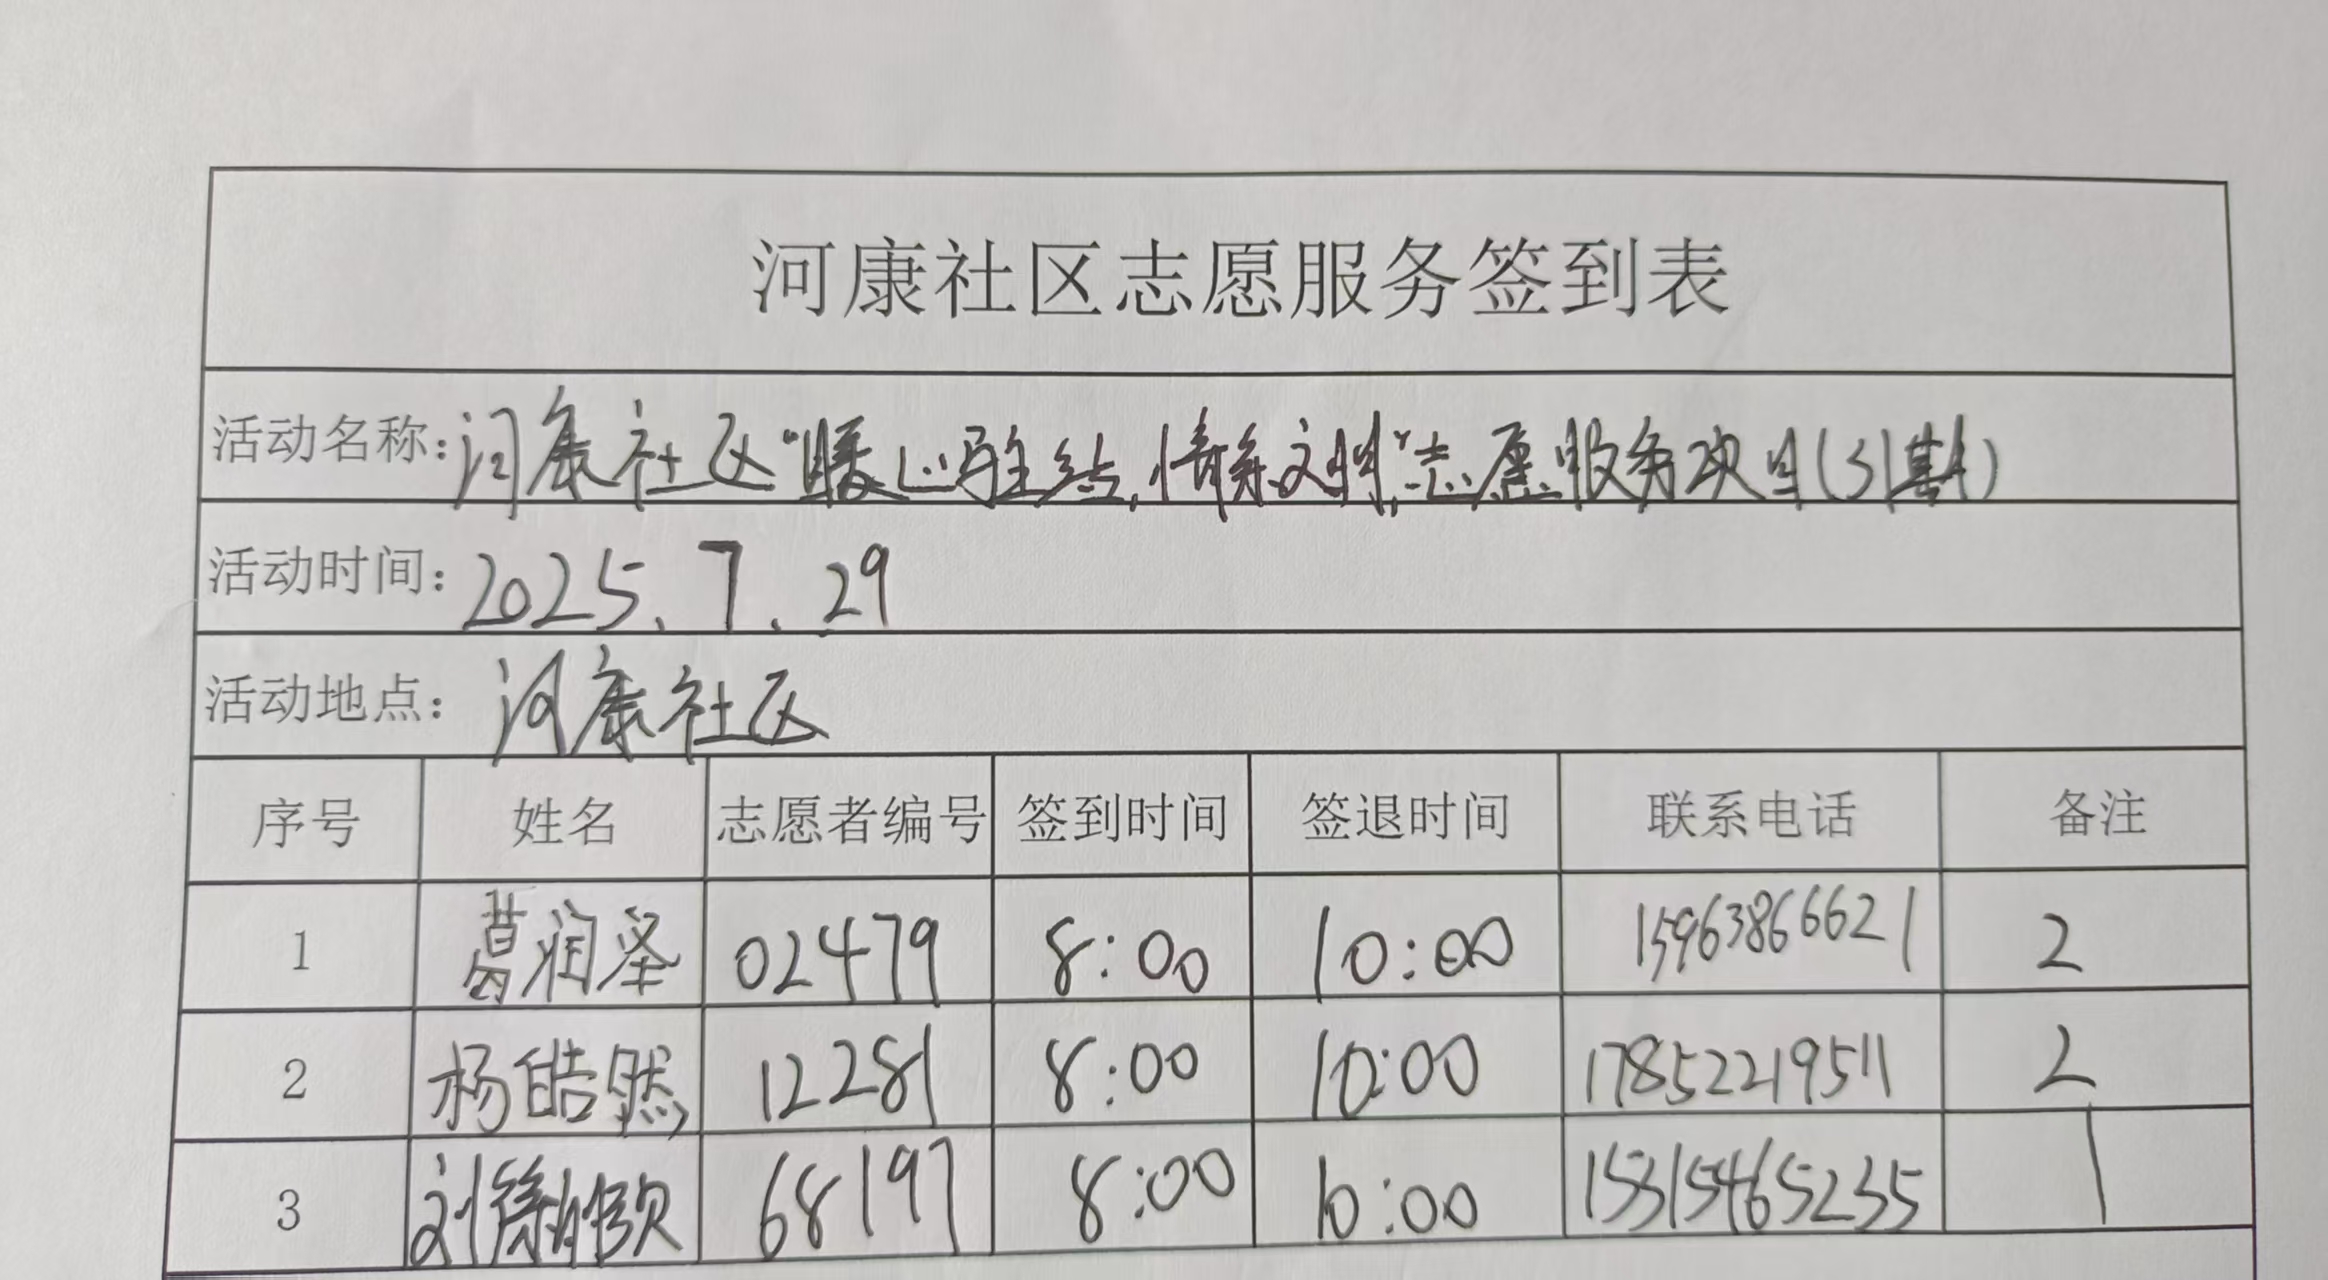 河康社区志愿服务签到表
活动名称：河康社区“暖心驿站，情系文明”志愿服务项目（31期）
活动时间：2025.7.29
活动地点：河康社区
序号 姓名 志愿者编号 签到时间 签退时间 联系电话 备注
1 葛润泽 02479 8:00 10:00 15963866621 2
2 杨皓然 12281 8:00 10:00 17852219511 2
3 刘 68197 8:00 10:00 15315465235 1